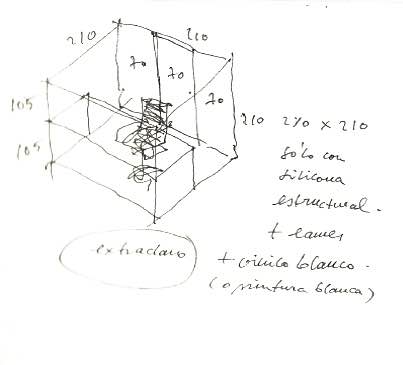 210 210
70
70
70
105
105
210
210 x 210
sólo con
silicona
estructural.
+ eames
+ vinilo blanco.
(o pintura blanca)
extraclaro